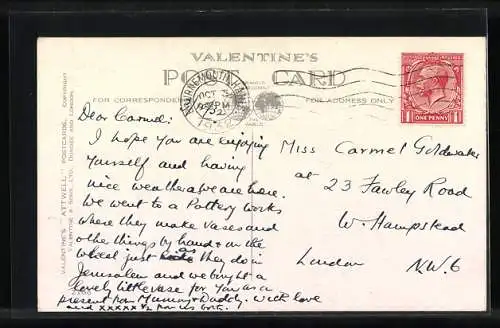 VALENTINE'S
POST CARD
FOR CORRESPONDENCE
FOR ADDRESS ONLY
ONE PENNY
VALENTINE'S "ATTWELL" POSTCARDS. COPYRIGHT
VALENTINE & SONS, LTD., DUNDEE AND LONDON.
Dear Carmel:
I hope you are enjoying
yourself and having
nice weather as we are here.
We went to a Pottery works
where they make vases and
other things by hand & on the
wheel just as they do in
Jerusalem and we bought a
lovely little vase for you as a
present from Mummy & Daddy. With love
and xxxxx
Miss Carmel Goldwater
at
23 Fawley Road
W. Hampstead
London N.W.6